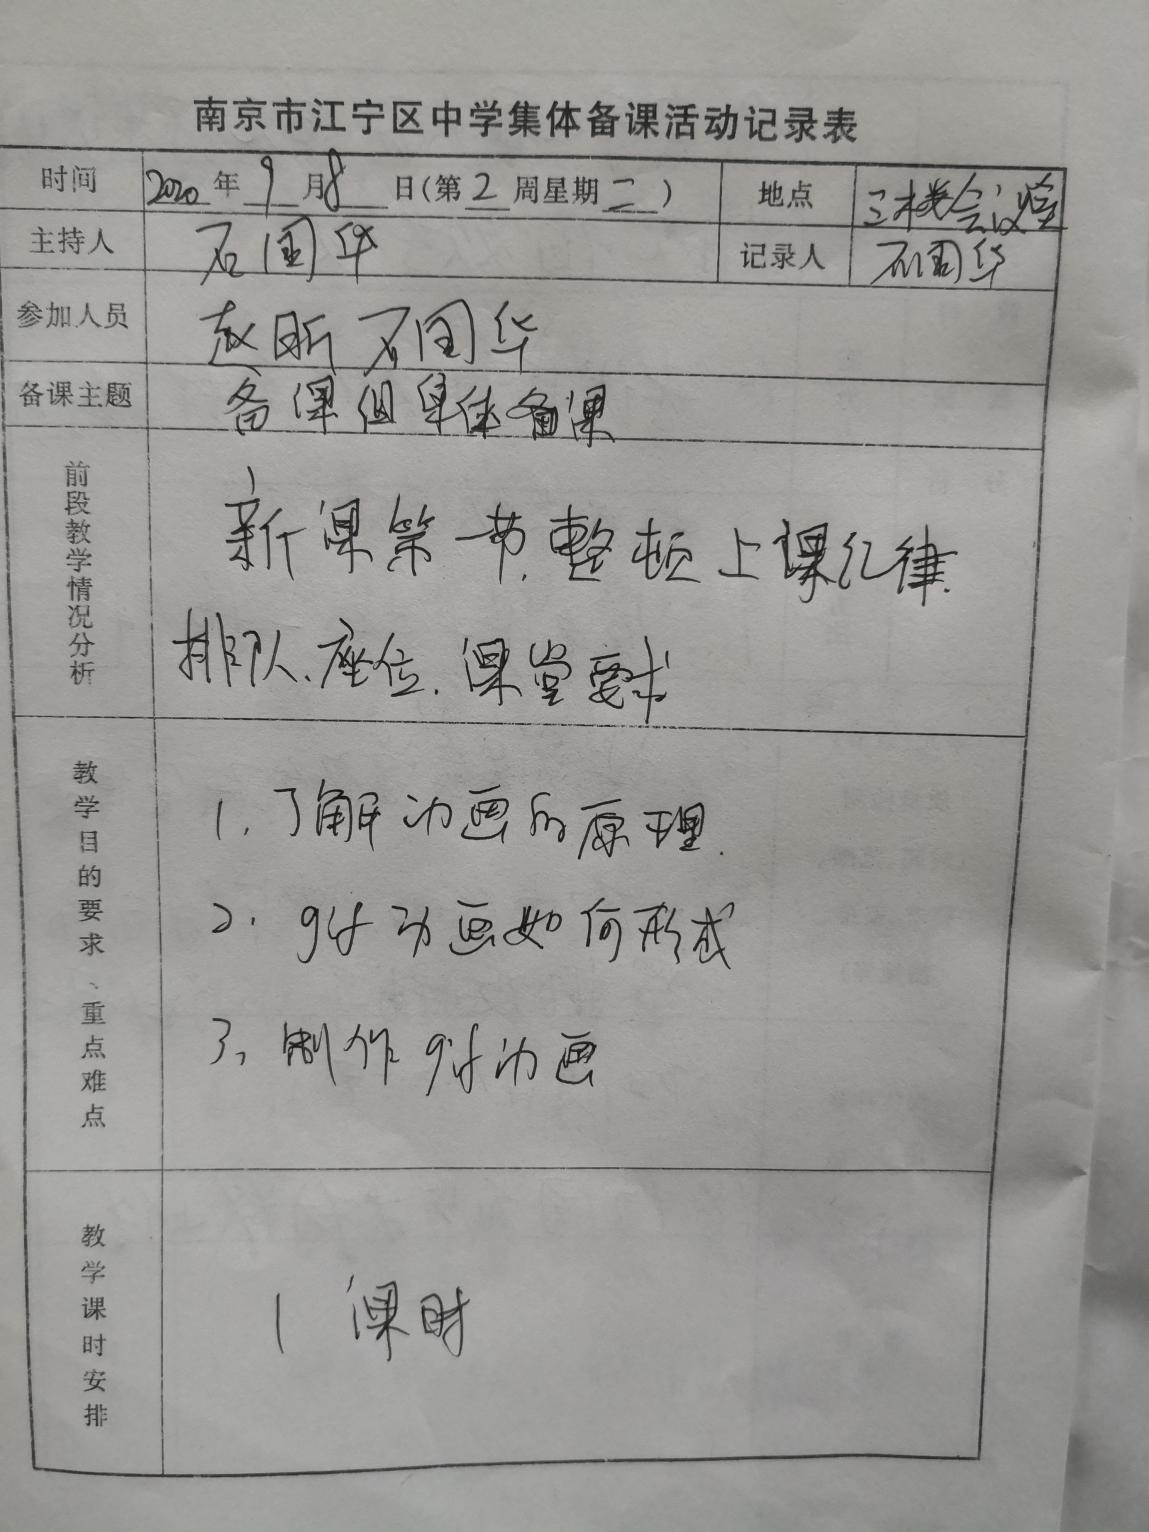 南京市江宁区中学集体备课活动记录表
时间 2020年9月8日(第2周星期二) 地点 三楼会议室
主持人 石国华 记录人 石国华
参加人员 赵昕 石国华
备课主题 备课组集体备课
前段教学情况分析
新课第一节,整顿上课纪律.
排队、座位、课堂要求
教学目的要求、重点难点
1、了解动画的原理.
2、gif动画如何形成
3、制作gif动画
教学课时安排
1 课时